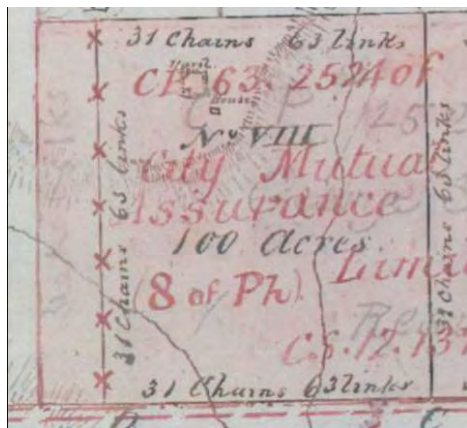 31 Chains 63 links
Yard
C.P. 63. 2524 of
House
No VIII
City Mutual
Assurance
100 Acres
(8 of Ph).
C.S. 12.
31 Chains 63 links
31 Chains 63 links
31 Chains 63 links